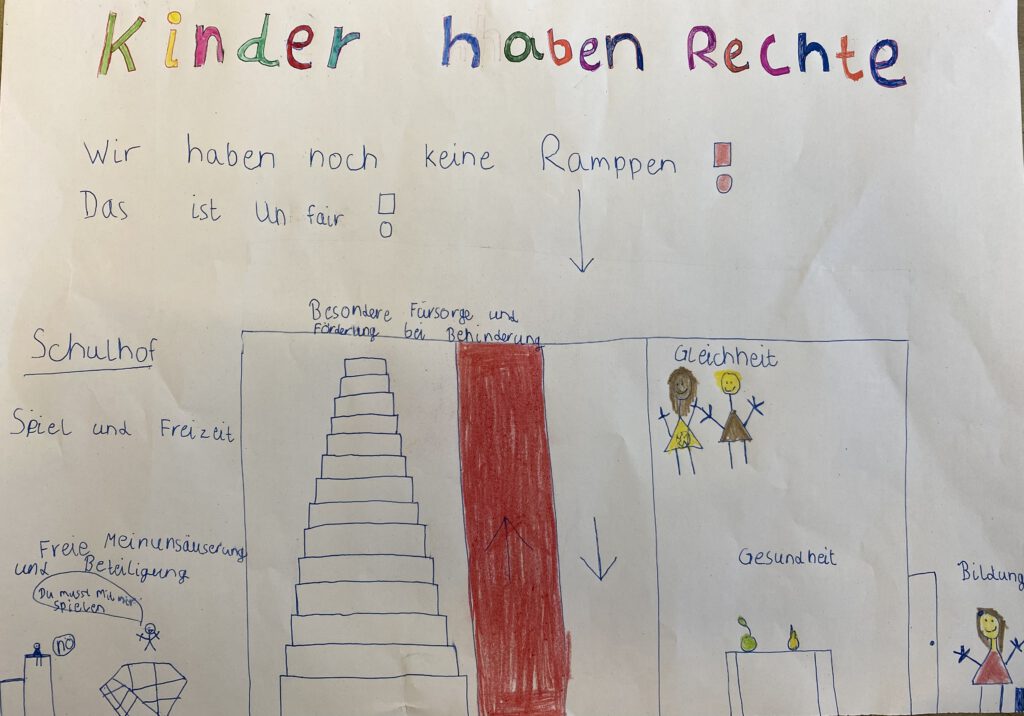 Kinder haben Rechte
Wir haben noch keine Ramppen !
Das ist Un fair !
Besondere Fürsorge und
Förderung bei Behinderung
Schulhof
Gleichheit
Spiel und Freizeit
Freie Meinunsäuserung
und Beteiligung
Du musst Mit mir
spielen
no
Gesundheit
Bildung